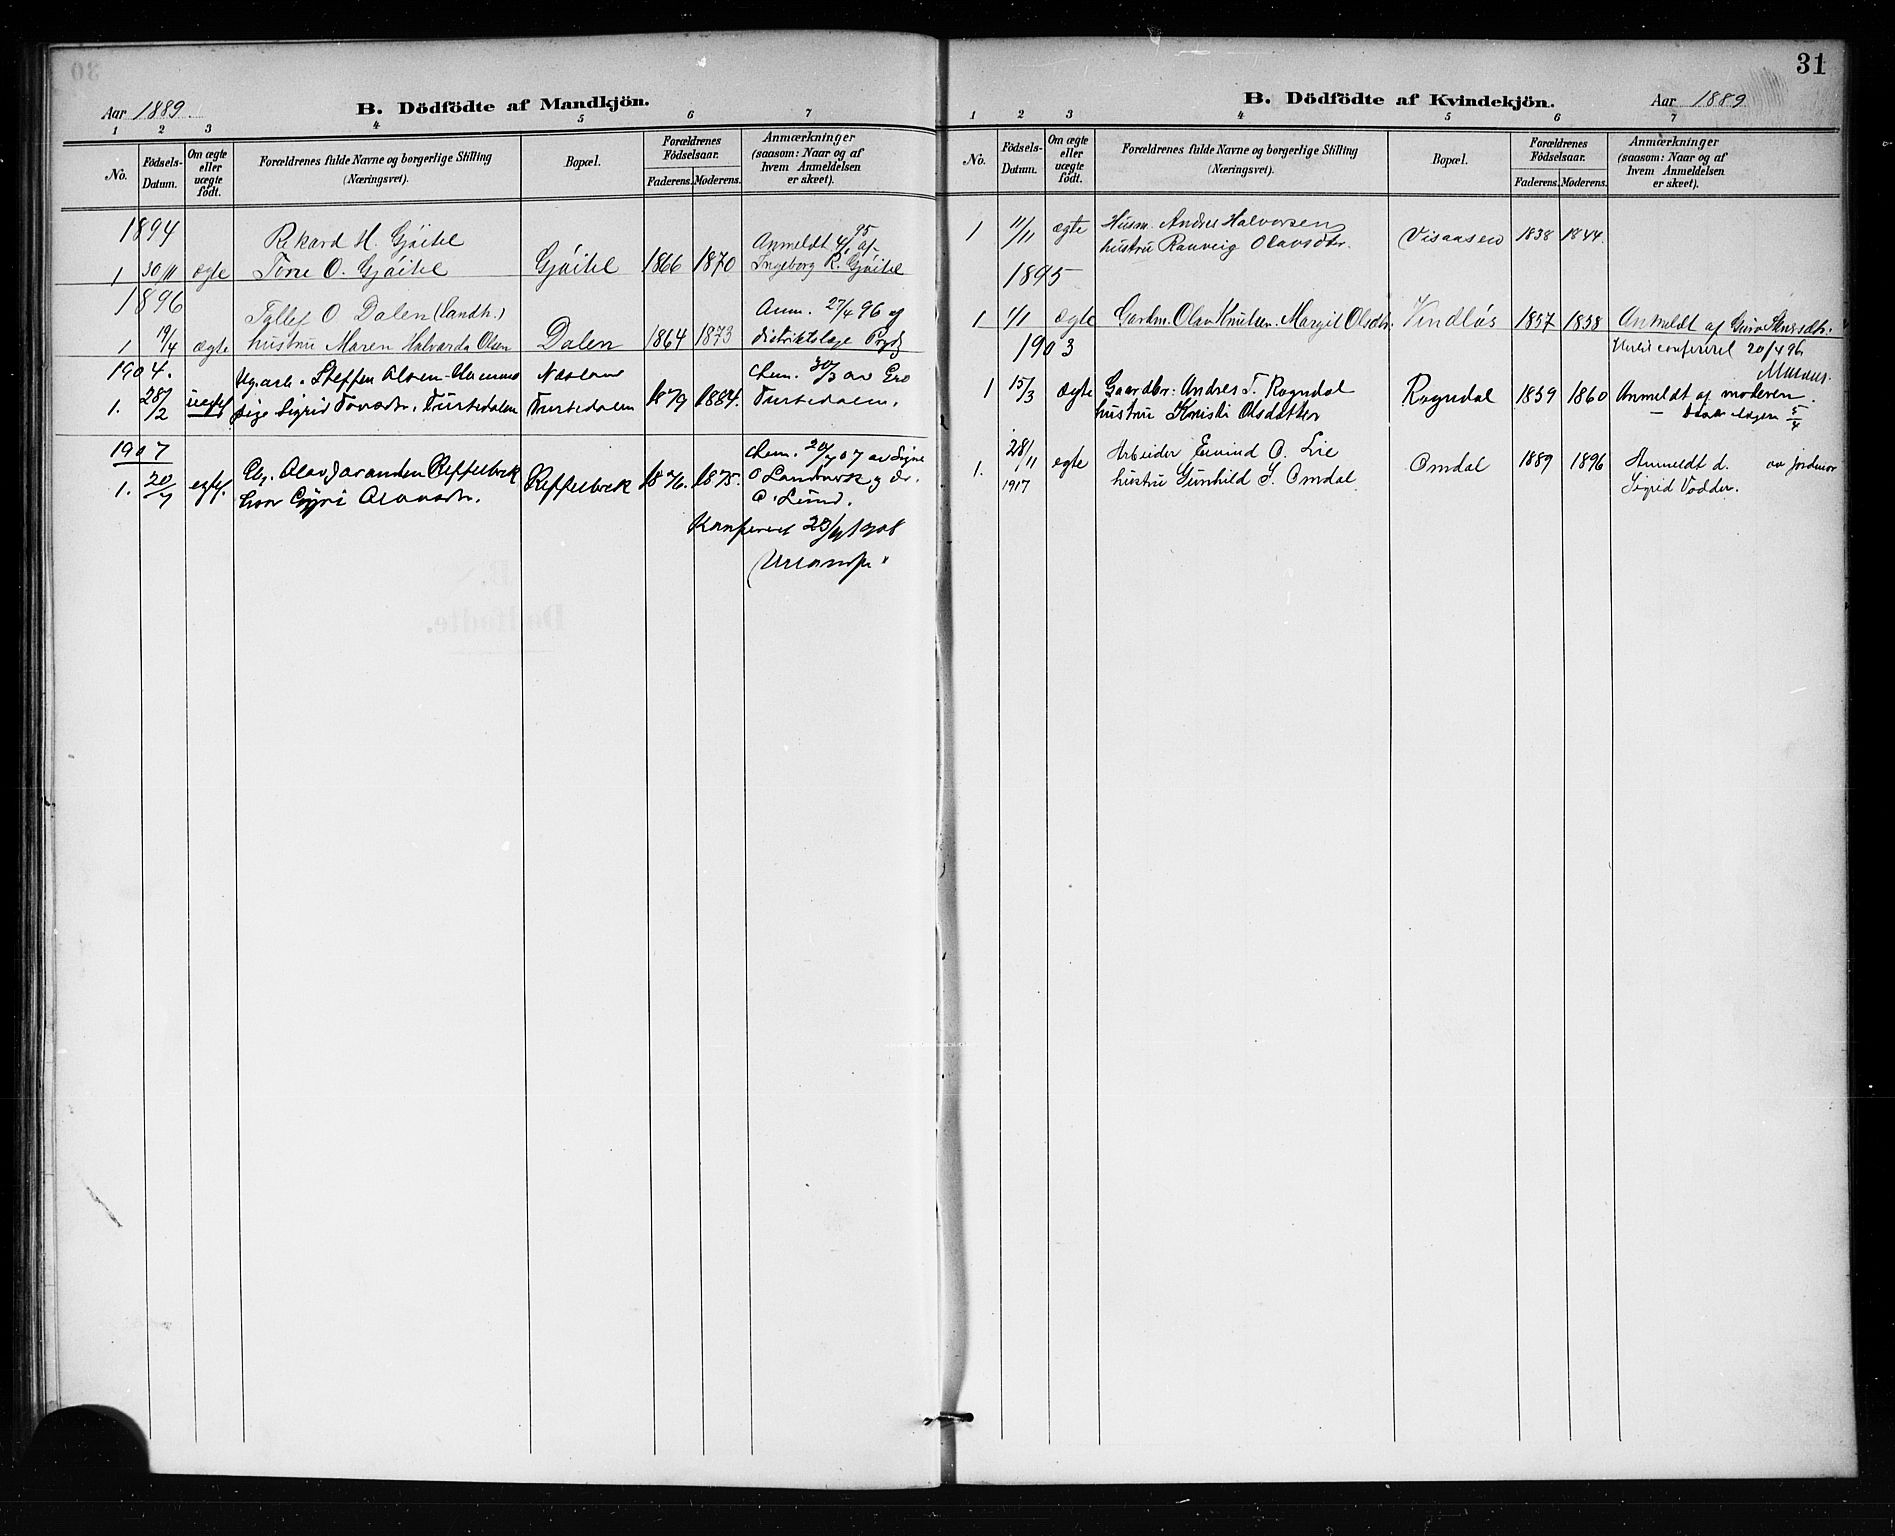 Aar 1889.
B. Dödfödte af Mandkjön.
1 2 3 4 5 6 7
No.
Födsels-Datum.
Om ægte eller uægte födt.
Forældrenes fulde Navne og borgerlige Stilling (Næringsvei).
Bopæl.
Forældrenes Födselsaar.
Faderens. Moderens.
Anmærkninger (saasom: Naar og af hvem Anmeldelsen er skeet).
1894
Rikard H. Gjöitil
Anmeldt 4/1 95 af
1 30/11 ægte Tone O. Gjöitil Gjöitil 1866 1870 Ingeborg R. Gjöitil
1896
Tollef O Dalen (Landh.)
Anm. 27/4 96 af
1 19/4 ægte hustru Maren Halvarda Olsen Dalen 1864 1873 distriktslæge
1904.
Ug. arb. Steffen Olsen
Anm. 30/3 av Gro
1. 28/2 uegte pige Sigrid Tovesdtr. Furtedalen Furtedalen 1879 1884. Furtedalen.
1907
Anm. 20/7 07 av Signe
1. 20/7 egte. 1876. 1875. O Landmark g dr.
O. Lund.
Konfereret 23/4 1908
31
B. Dödfödte af Kvindekjön.
Aar 1889
1 2 3 4 5 6 7
No.
Födsels-Datum.
Om ægte eller uægte födt.
Forældrenes fulde Navne og borgerlige Stilling (Næringsvei).
Bopæl.
Forældrenes Födselsaar.
Faderens. Moderens.
Anmærkninger (saasom: Naar og af hvem Anmeldelsen er skeet).
1 11/11 ægte Husm. Andres Halvorsen
hustru Ranveig Olavsdtr. Visaasen 1838 1844.
1895
1 4/1 ægte Gardm. Olav Knutsen Margit Olsdtr. Vindlös 1857 1858 Anmeldt af Guro
1903
confereret 20/4 96
1 15/3 ægte Gaardbr. Andres T. Rogndal Rogndal 1859 1860 Anmeldt af moderen.
hustru Kristi Olsdatter
5/4
1. 28/11 1917 egte Arbeider Eivind O. Lie Omdal 1889 1896 Anmeldt d. av jordmor
hustru Gunhild S. Omdal Sigrid Vadder.